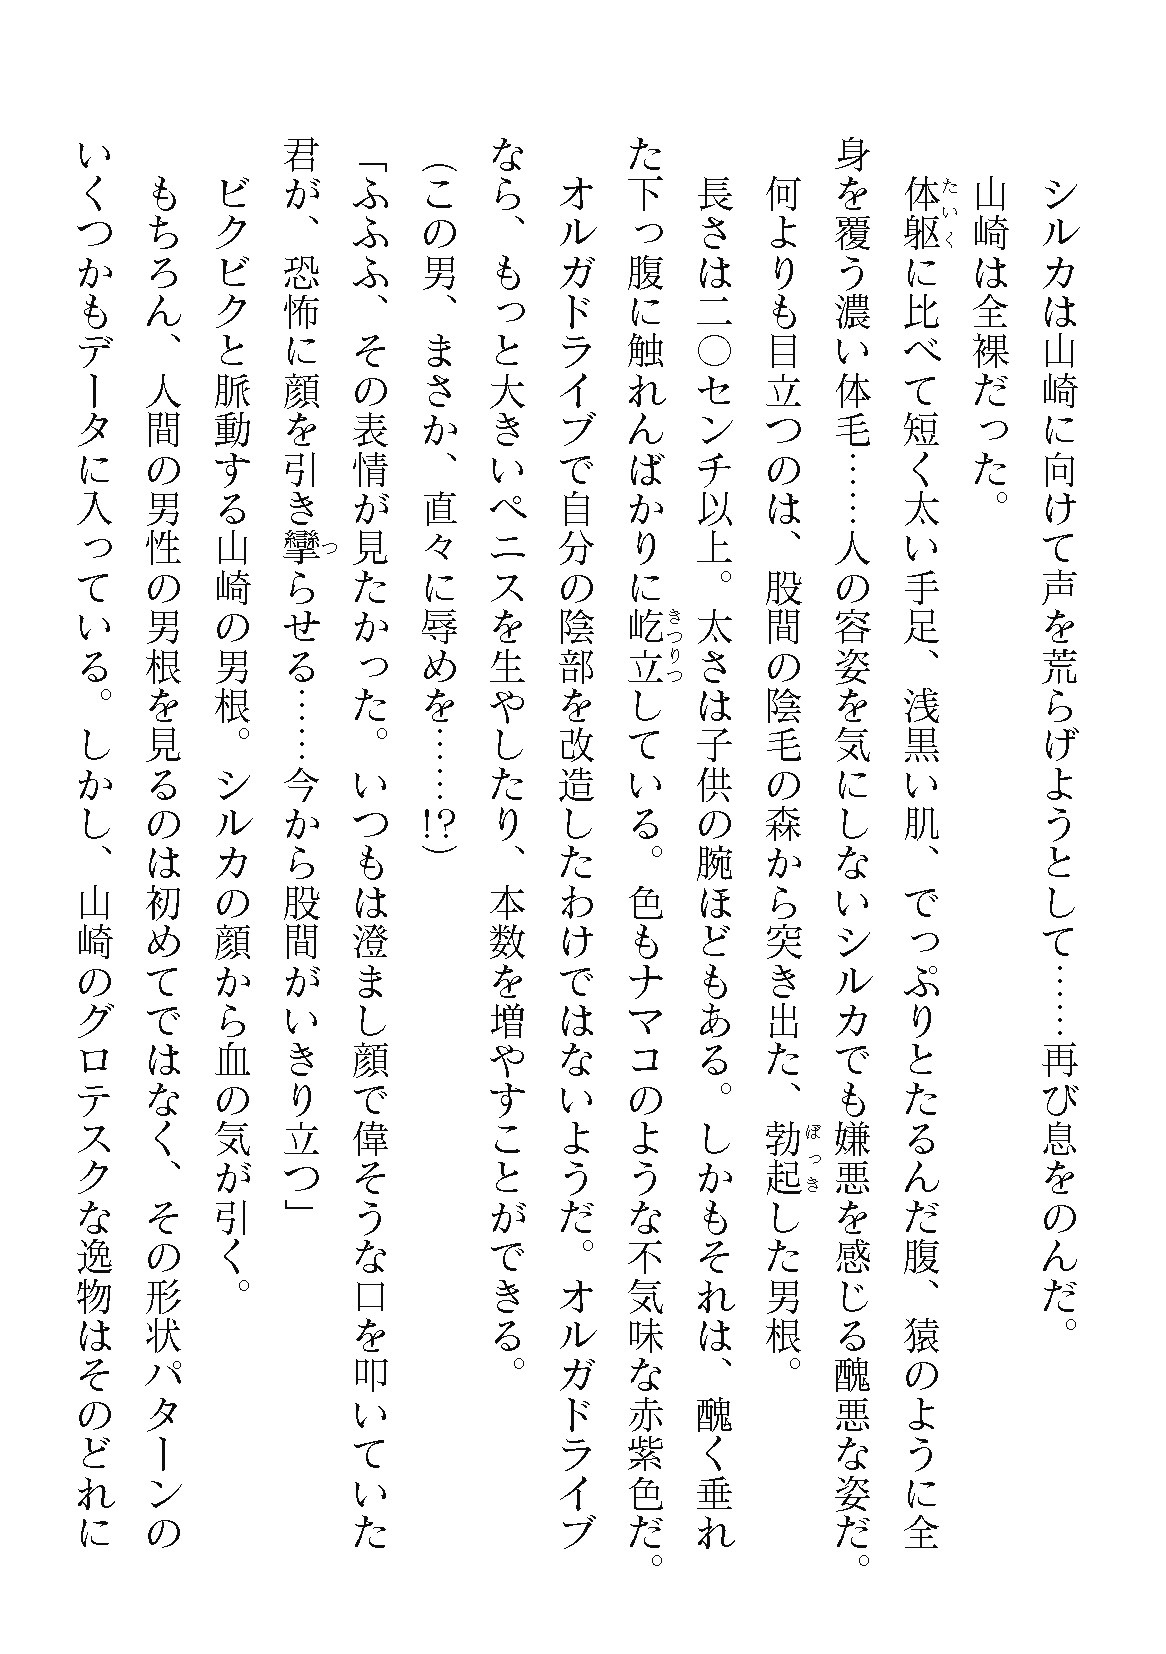 シルカは山崎に向けて声を荒らげようとして……再び息をのんだ。
山崎は全裸だった。
体躯に比べて短く太い手足、浅黒い肌、でっぷりとたるんだ腹、猿のように全
身を覆う濃い体毛……人の容姿を気にしないシルカでも嫌悪を感じる醜悪な姿だ。
何よりも目立つのは、股間の陰毛の森から突き出た、勃起した男根。
長さは二〇センチ以上。太さは子供の腕ほどもある。しかもそれは、醜く垂れ
た下っ腹に触れんばかりに屹立している。色もナマコのような不気味な赤紫色だ。
オルガドライブで自分の陰部を改造したわけではないようだ。オルガドライブ
なら、もっと大きいペニスを生やしたり、本数を増やすことができる。
(この男、まさか、直々に辱めを……!?)
「ふふふ、その表情が見たかった。いつもは澄まし顔で偉そうな口を叩いていた
君が、恐怖に顔を引き攣らせる……今から股間がいきり立つ」
ビクビクと脈動する山崎の男根。シルカの顔から血の気が引く。
もちろん、人間の男性の男根を見るのは初めてではなく、その形状パターンの
いくつかもデータに入っている。しかし、山崎のグロテスクな逸物はそのどれに